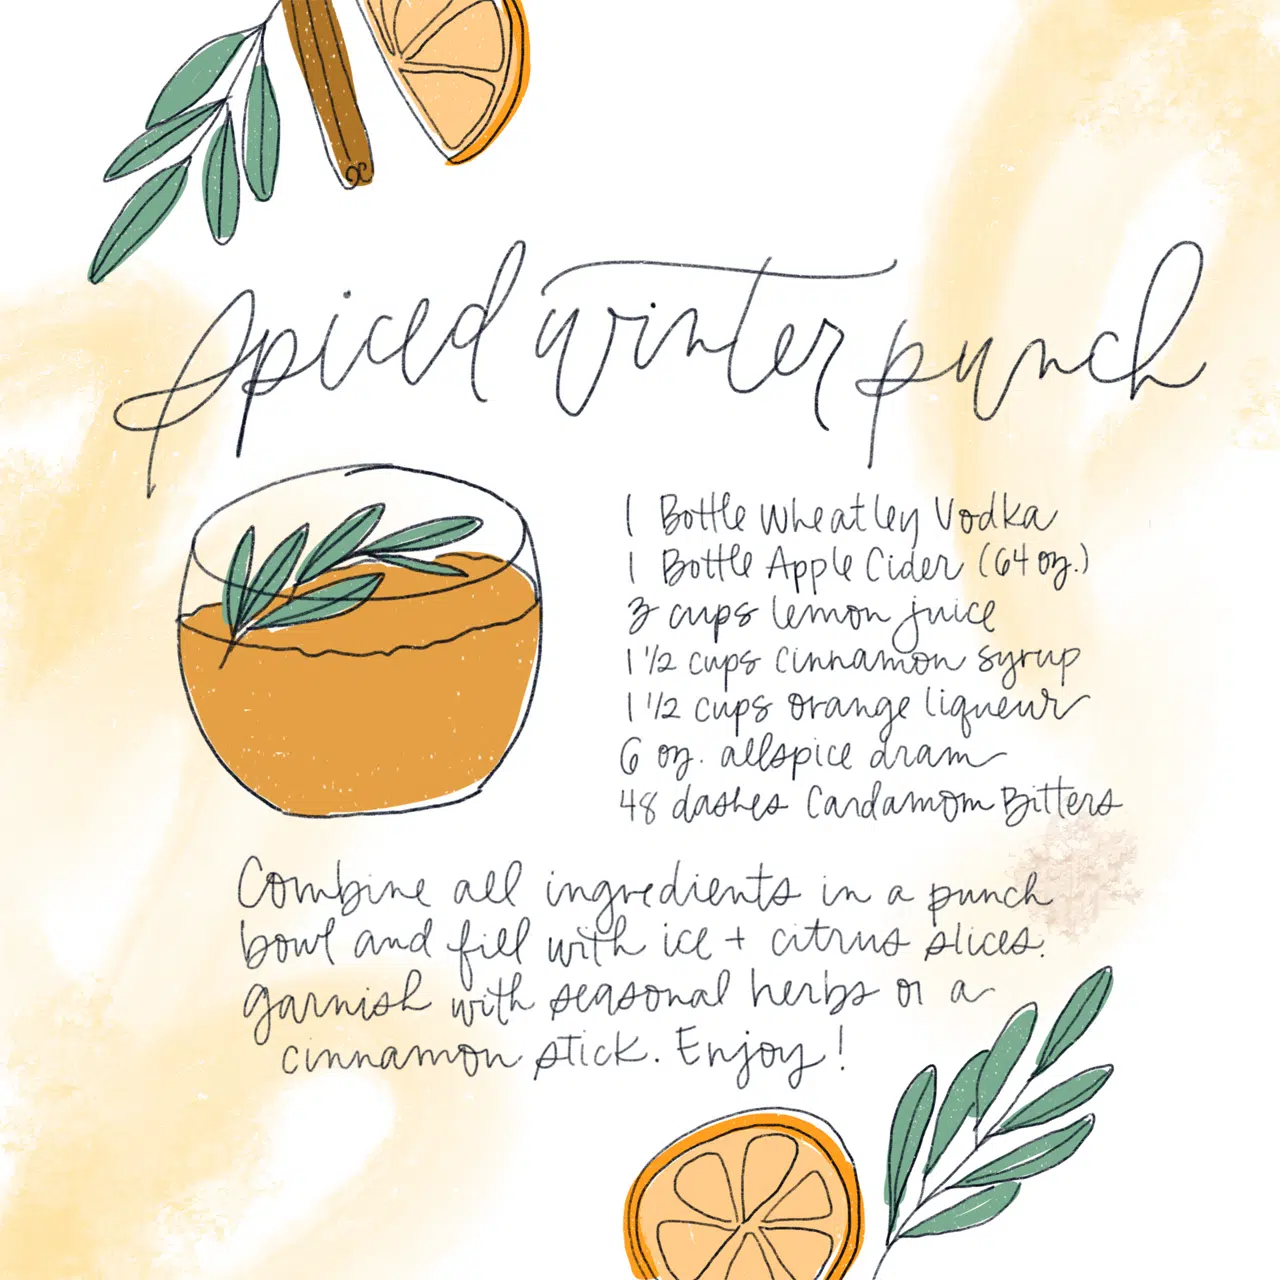 spiced winter punch
1 Bottle Wheatley Vodka
1 Bottle Apple Cider (64 oz.)
3 cups lemon juice
1 1/2 cups cinnamon syrup
1 1/2 cups orange liqueur
6 oz. allspice dram
48 dashes Cardamom Bitters
Combine all ingredients in a punch
bowl and fill with ice + citrus slices.
garnish with seasonal herbs or a
cinnamon stick. Enjoy!